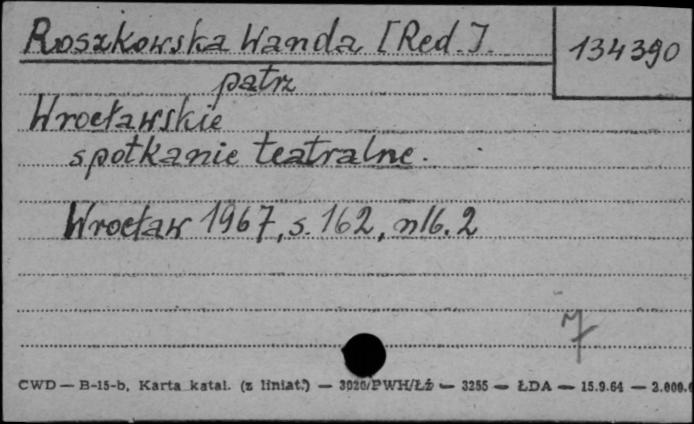 Roszkowska Wanda [Red.].
134390
patrz
Wrocławskie
spotkanie teatralne.
Wrocław 1967, s. 162, nlb. 2
7
CWD — B-15-b, Karta katal. (z liniat.) — 3020/PWH/Łź — 3255 — ŁDA — 15.9.64 — 2.000.0